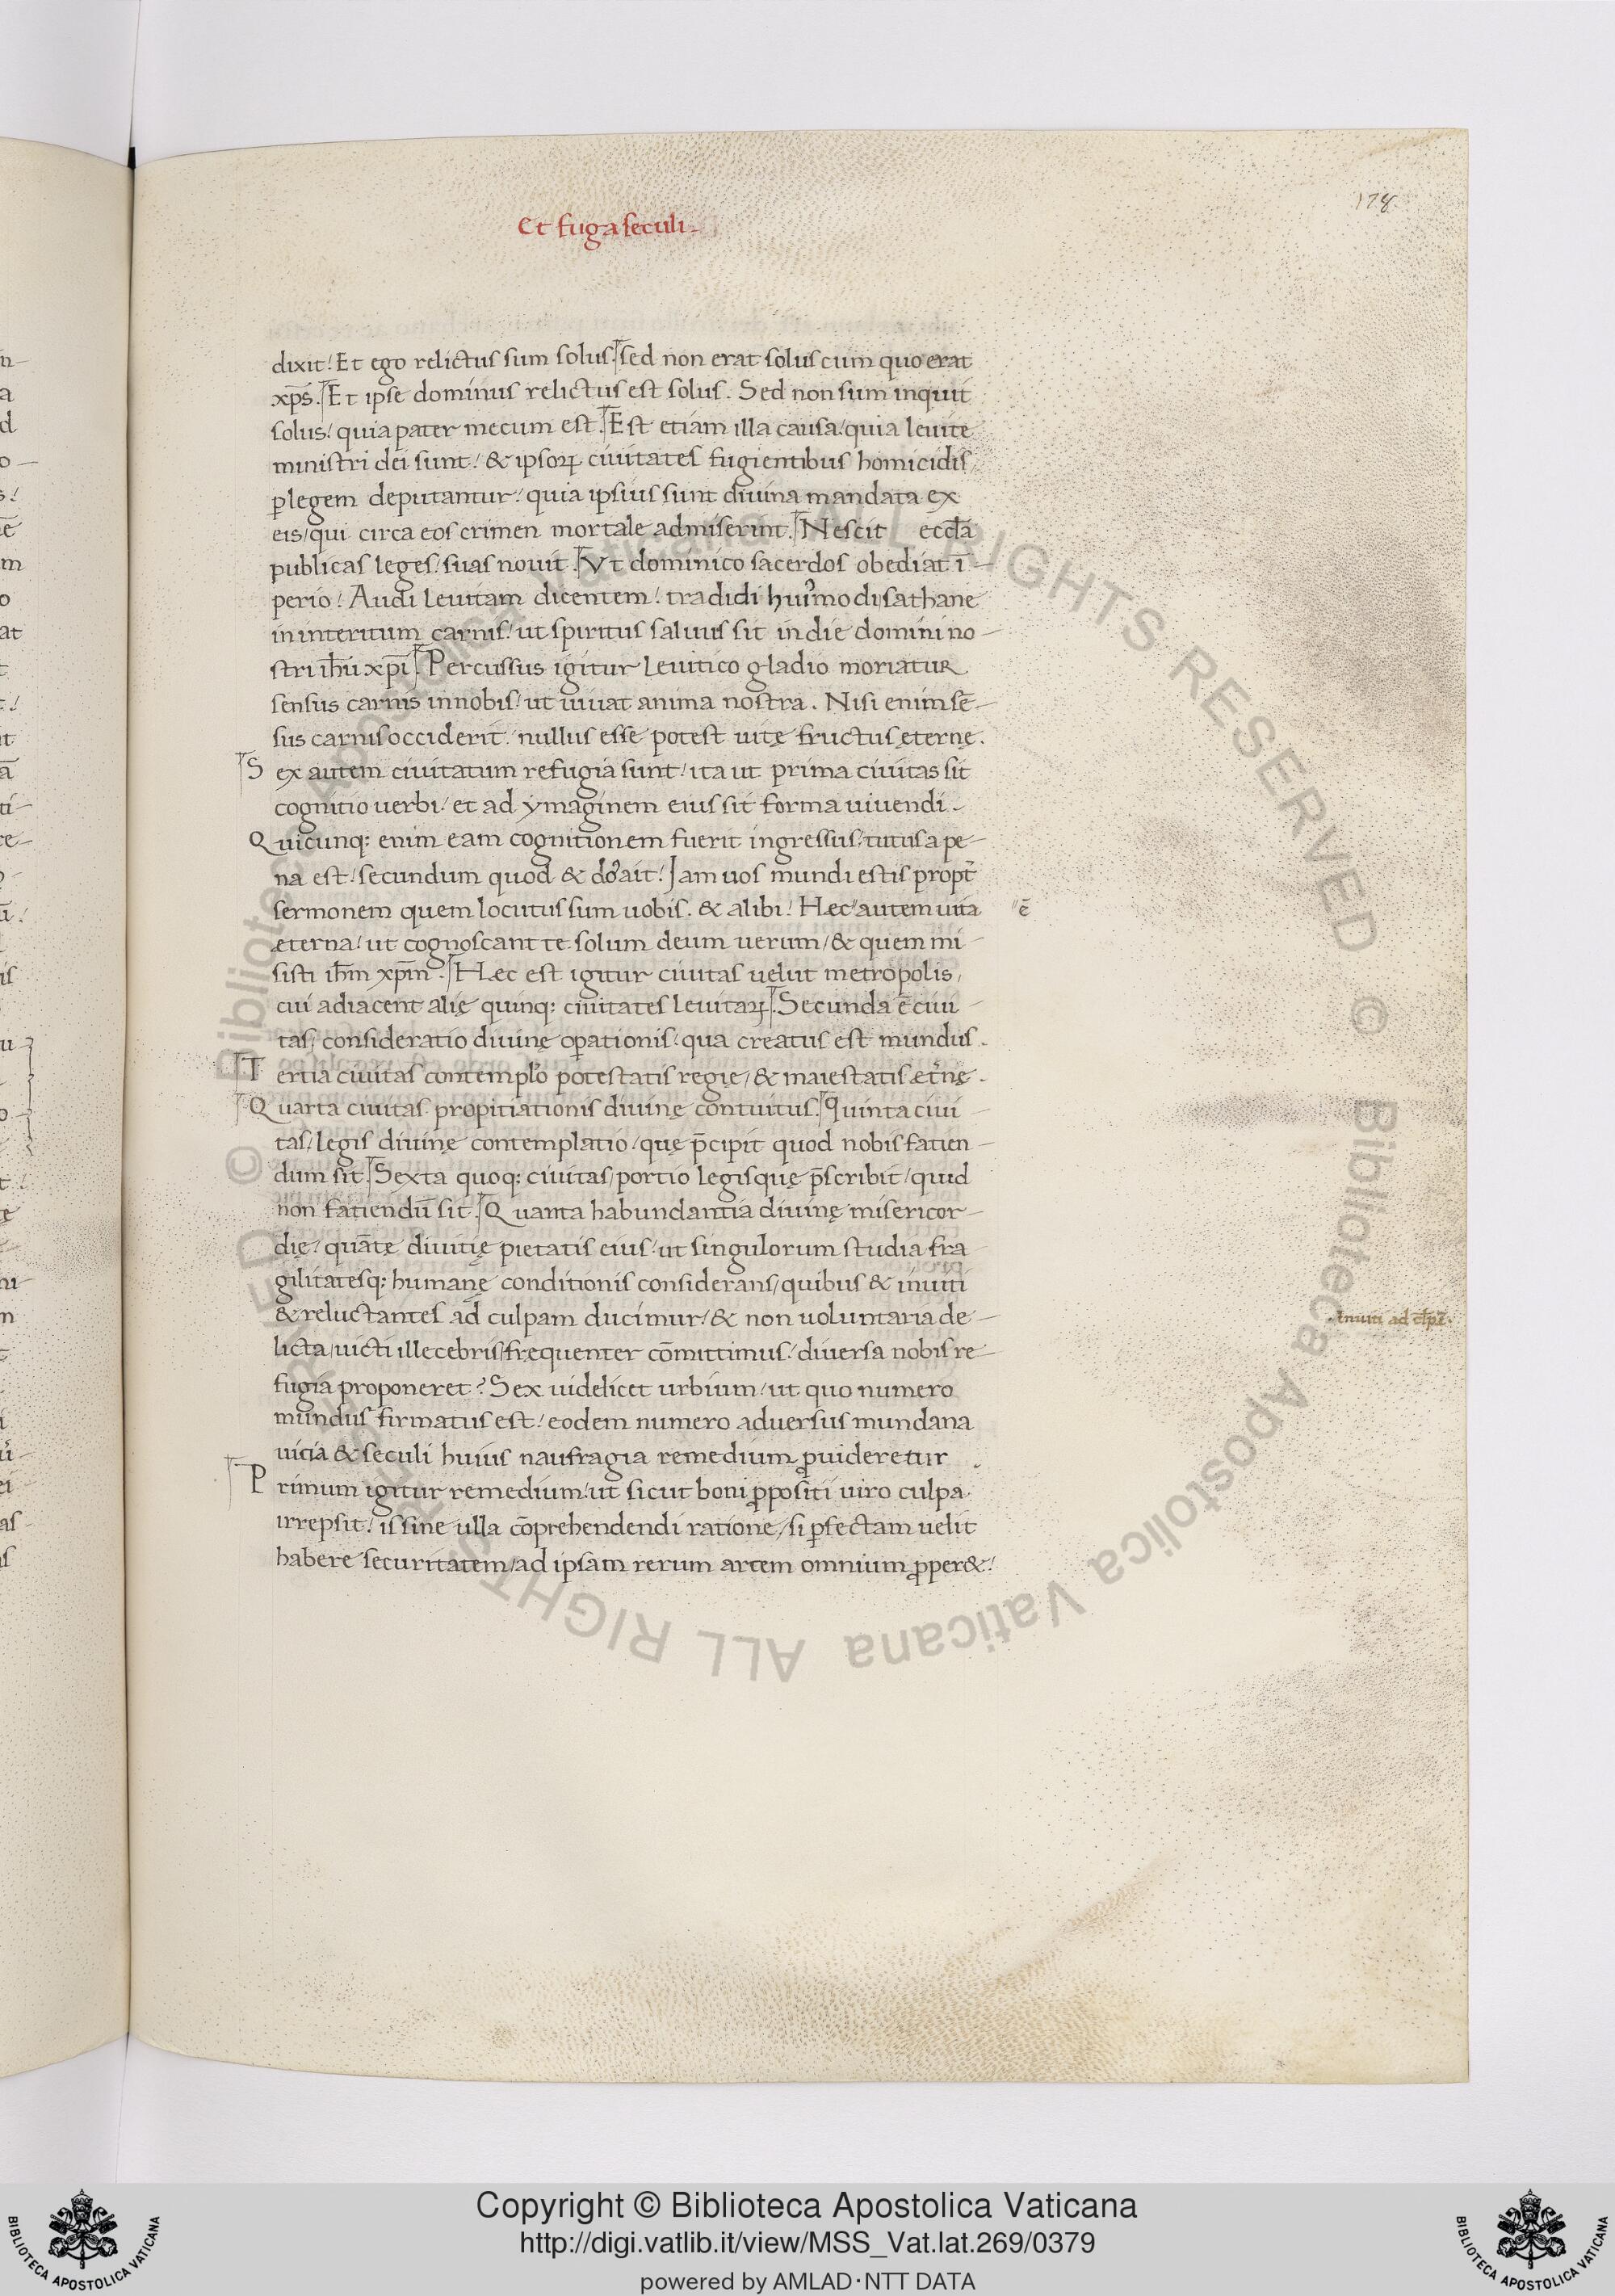 178
Et fuga seculi
dixit! Et ego relictus sum solus. sed non erat solus cum quo erat
xp̄s. Et ipse dominus relictus est solus. Sed non sum inquit
solus! quia pater mecum est. Est etiam illa causa! quia leuite
ministri dei sunt! & ipsoꝝ ciuitates fugientibus homicidis
ꝑ legem deputantur! quia ipsius sunt diuina mandata ex
eis/ qui circa eos crimen mortale admiserint. Nescit eccl̄a
publicas leges! suas nouit. Vt dominico sacerdos obediat ī-
perio! Audi leuitam dicentem! tradidi huiꝰmodi sathane
in interitum carnis! ut spiritus saluus sit in die domini no-
stri ih̄u xp̄i. Percussus igitur leuitico gladio moriatur
sensus carnis in nobis! ut uiuat anima nostra. Nisi enim sē-
sus carnis occiderit nullus esse potest uitę fructus ęternę.
Sex autem ciuitatum refugia sunt! ita ut prima ciuitas sit
cognitio uerbi! et ad ymaginem eius sit forma uiuendi.
Quicunq: enim eam cognitionem fuerit ingressus! tutus a pe-
na est! secundum quod & do᷒ ait! Iam uos mundi estis propt̄
sermonem quem locutus sum uobis. & alibi! Hæc" autem uita "ē
æterna! ut cognoscant te solum deum uerum/ & quem mi-
sisti ih̄m xp̄m. Hæc est igitur ciuitas uelut metropolis,
cui adiacent alię quinq: ciuitates leuitaꝝ. Secunda ē ciui-
tas/ consideratio diuinę oꝑationis! qua creatus est mundus.
Tertia ciuitas contempl̄o potestatis regię/ & maiestatis æt̄nę.
Quarta ciuitas propitiationis diuinę contuitus. Quinta ciui-
tas! legis diuinę contemplatio! quę p̄cipit quod nobis fatien-
dum sit. Sexta quoq: ciuitas/ portio legis quę p̄scribit/ quid
non fatiendū sit. Quanta habundantia diuinę misericor-
dię! quātę diuitię pietatis eius! ut singulorum studia fra-
gilitatesq: humanę conditionis considerans/ quibus & inuiti
& reluctantes ad culpam ducimur/ & non uoluntaria de-
licta/ uicti illecebris/ frequenter cōmittimus! diuersa nobis re-
fugia proponeret? Sex uidelicet urbium/ ut quo numero
mundus firmatus est! eodem numero aduersus mundana
uicia & seculi huius naufragia remedium ꝓuideretur.
Primum igitur remedium! ut sicut boni ꝓpositi uiro culpa
irrepsit! is sine ulla cōprehendendi ratione/ si ꝑfectam uelit
habere securitatem/ ad ipsam rerum artem omnium ꝓper&!
Inuiti ad
Copyright © Biblioteca Apostolica Vaticana
http://digi.vatlib.it/view/MSS_Vat.lat.269/0379
powered by AMLAD·NTT DATA
BIBLIOTECA APOSTOLICA VATICANA
BIBLIOTECA APOSTOLICA VATICANA
© Biblioteca Apostolica Vaticana ALL RIGHTS RESERVED
© Biblioteca Apostolica Vaticana ALL RIGHTS RESERVED